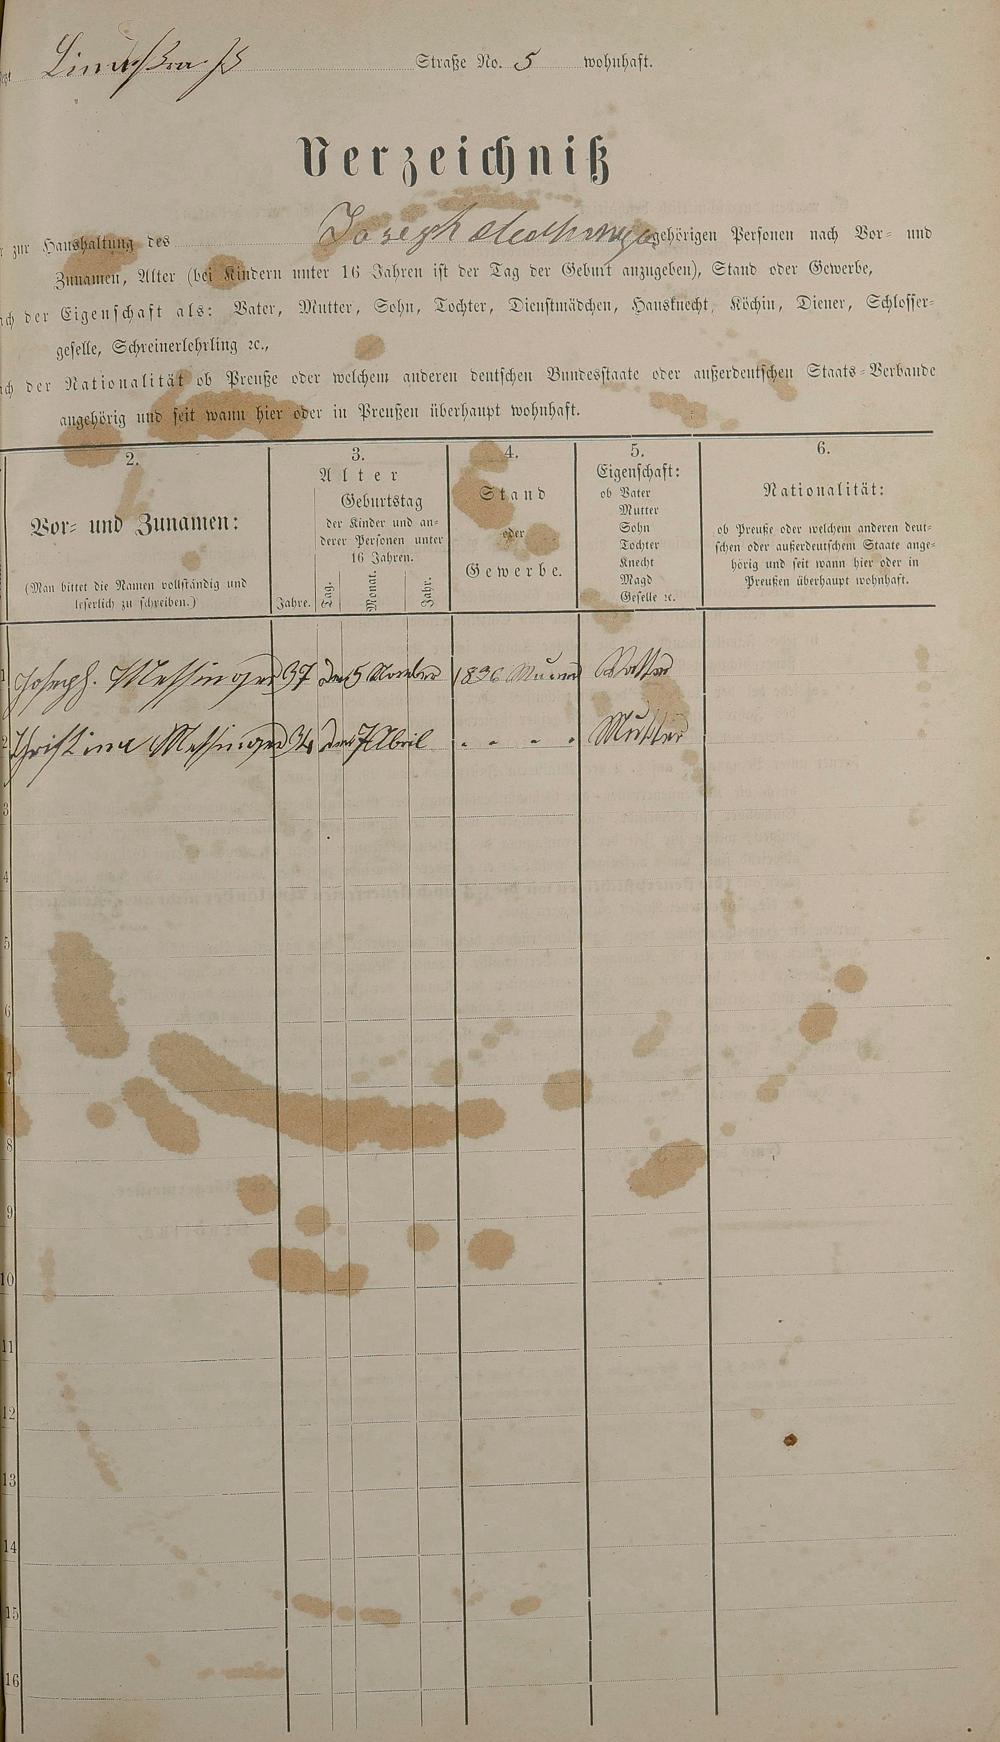 Straße No. 5 wohnhaft.
Verzeichniß
zur Haushaltung des Joseph gehörigen Personen nach Vor- und
Zunamen, Alter (bei Kindern unter 16 Jahren ist der Tag der Geburt anzugeben), Stand oder Gewerbe,
der Eigenschaft als: Vater, Mutter, Sohn, Tochter, Dienstmädchen, Hausknecht, Köchin, Diener, Schlosser-
geselle, Schreinerlehrling ꝛc.,
der Nationalität ob Preuße oder welchem anderen deutschen Bundesstaate oder außerdeutschen Staats-Verbande
angehörig und seit wann hier oder in Preußen überhaupt wohnhaft.
2.
Vor- und Zunamen:
(Man bittet die Namen vollständig und
leserlich zu schreiben.)
3.
Alter
Geburtstag
der Kinder und an-
derer Personen unter
16 Jahren.
Jahre.
Tag.
Monat.
Jahr.
4.
Stand
oder
Gewerbe.
5.
Eigenschaft:
ob Vater
Mutter
Sohn
Tochter
Knecht
Magd
Geselle ꝛc.
6.
Nationalität:
ob Preuße oder welchem anderen deut-
schen oder außerdeutschem Staate ange-
hörig und seit wann hier oder in
Preußen überhaupt wohnhaft.
1 Joseph. Messinger 37 den 5 1836 Vatter
2 Christine Messinger den 7 Abril Mutter
3
4
5
6
7
8
9
10
11
12
13
14
15
16